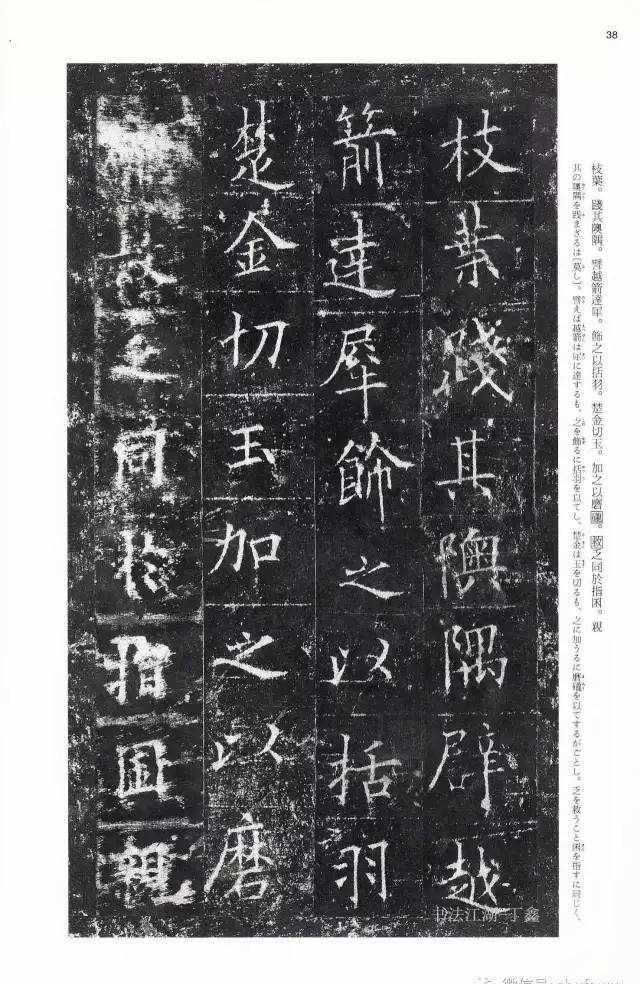 38
枝葉。踐其隩隅。譬越箭達犀。飾之以括羽。楚金切玉。加之以磨礲。救乏同於指囷。親
其の隩隅を践まざるは[莫し]。譬えば越箭は犀に達するも、之を飾るに括羽を以てし、楚金は玉を切るも、之に加うるに磨礲を以てするがごとし。乏を救うこと囷を指すに同じく、
枝葉踐其隩隅辟越
箭達犀飾之以括羽
楚金切玉加之以磨
救乏同於指囷親
书法江湖 丁鑫